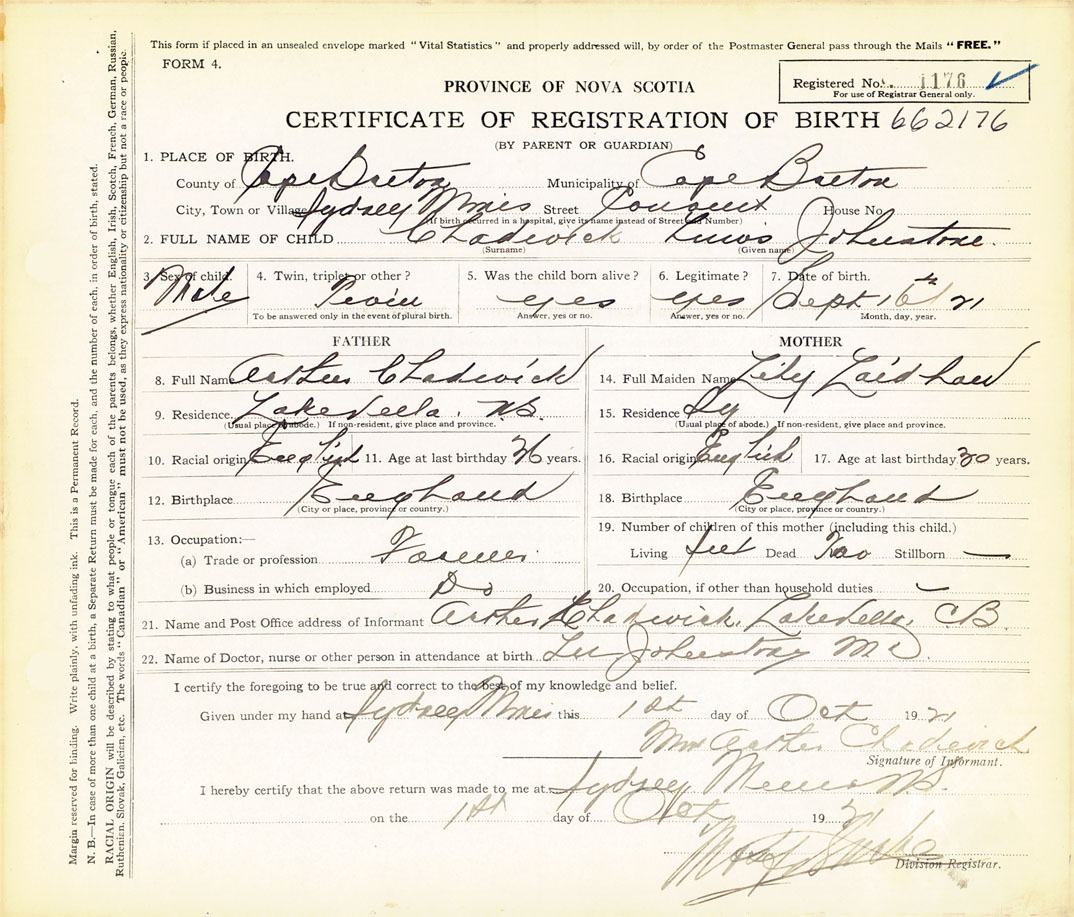 This form if placed in an unsealed envelope marked "Vital Statistics" and properly addressed will, by order of the Postmaster General pass through the Mails "FREE."
FORM 4.
Registered No. 1176 ✓
For use of Registrar General only.
PROVINCE OF NOVA SCOTIA
CERTIFICATE OF REGISTRATION OF BIRTH 662176
(BY PARENT OR GUARDIAN)
1. PLACE OF BIRTH.
County of Cape Breton Municipality of Cape Breton
City, Town or Village Sydney Mines Street House No.
(If birth occurred in a hospital, give its name instead of Street and Number)
2. FULL NAME OF CHILD Chadwick Johnstone.
(Surname) (Given name)
3. Sex of child. 4. Twin, triplet or other? 5. Was the child born alive? 6. Legitimate? 7. Date of birth.
Male yes yes Sept 16th 21
To be answered only in the event of plural birth. Answer, yes or no. Answer, yes or no. Month, day, year.
FATHER
8. Full Name Arthur Chadwick
9. Residence. N.S.
(Usual place of abode.) If non-resident, give place and province.
10. Racial origin English 11. Age at last birthday 36 years.
12. Birthplace England
(City or place, province or country.)
13. Occupation:—
(a) Trade or profession Farmer
(b) Business in which employed Do
MOTHER
14. Full Maiden Name Lily Laidlaw
15. Residence
(Usual place of abode.) If non-resident, give place and province.
16. Racial origin English 17. Age at last birthday 30 years.
18. Birthplace England
(City or place, province or country.)
19. Number of children of this mother (including this child.)
Living Dead Two Stillborn —
20. Occupation, if other than household duties —
21. Name and Post Office address of Informant Arthur Chadwick, CB
22. Name of Doctor, nurse or other person in attendance at birth Johnstone MD.
I certify the foregoing to be true and correct to the best of my knowledge and belief.
Given under my hand at Sydney Mines this 1st day of Oct 1921
Mrs Arthur Chadwick
Signature of Informant.
I hereby certify that the above return was made to me at Sydney Mines NS.
on the 1st day of Oct 1921
Division Registrar.
Margin reserved for binding. Write plainly, with unfading ink. This is a Permanent Record.
N. B.—In case of more than one child at a birth, a Separate Return must be made for each, and the number of each, in order of birth, stated.
RACIAL ORIGIN will be described by stating to what people or tongue each of the parents belongs, whether English, Irish, Scotch, French, German, Russian,
Ruthenian, Slovak, Galician, etc. The words "Canadian" or "American" must not be used, as they express nationality or citizenship but not a race or people.